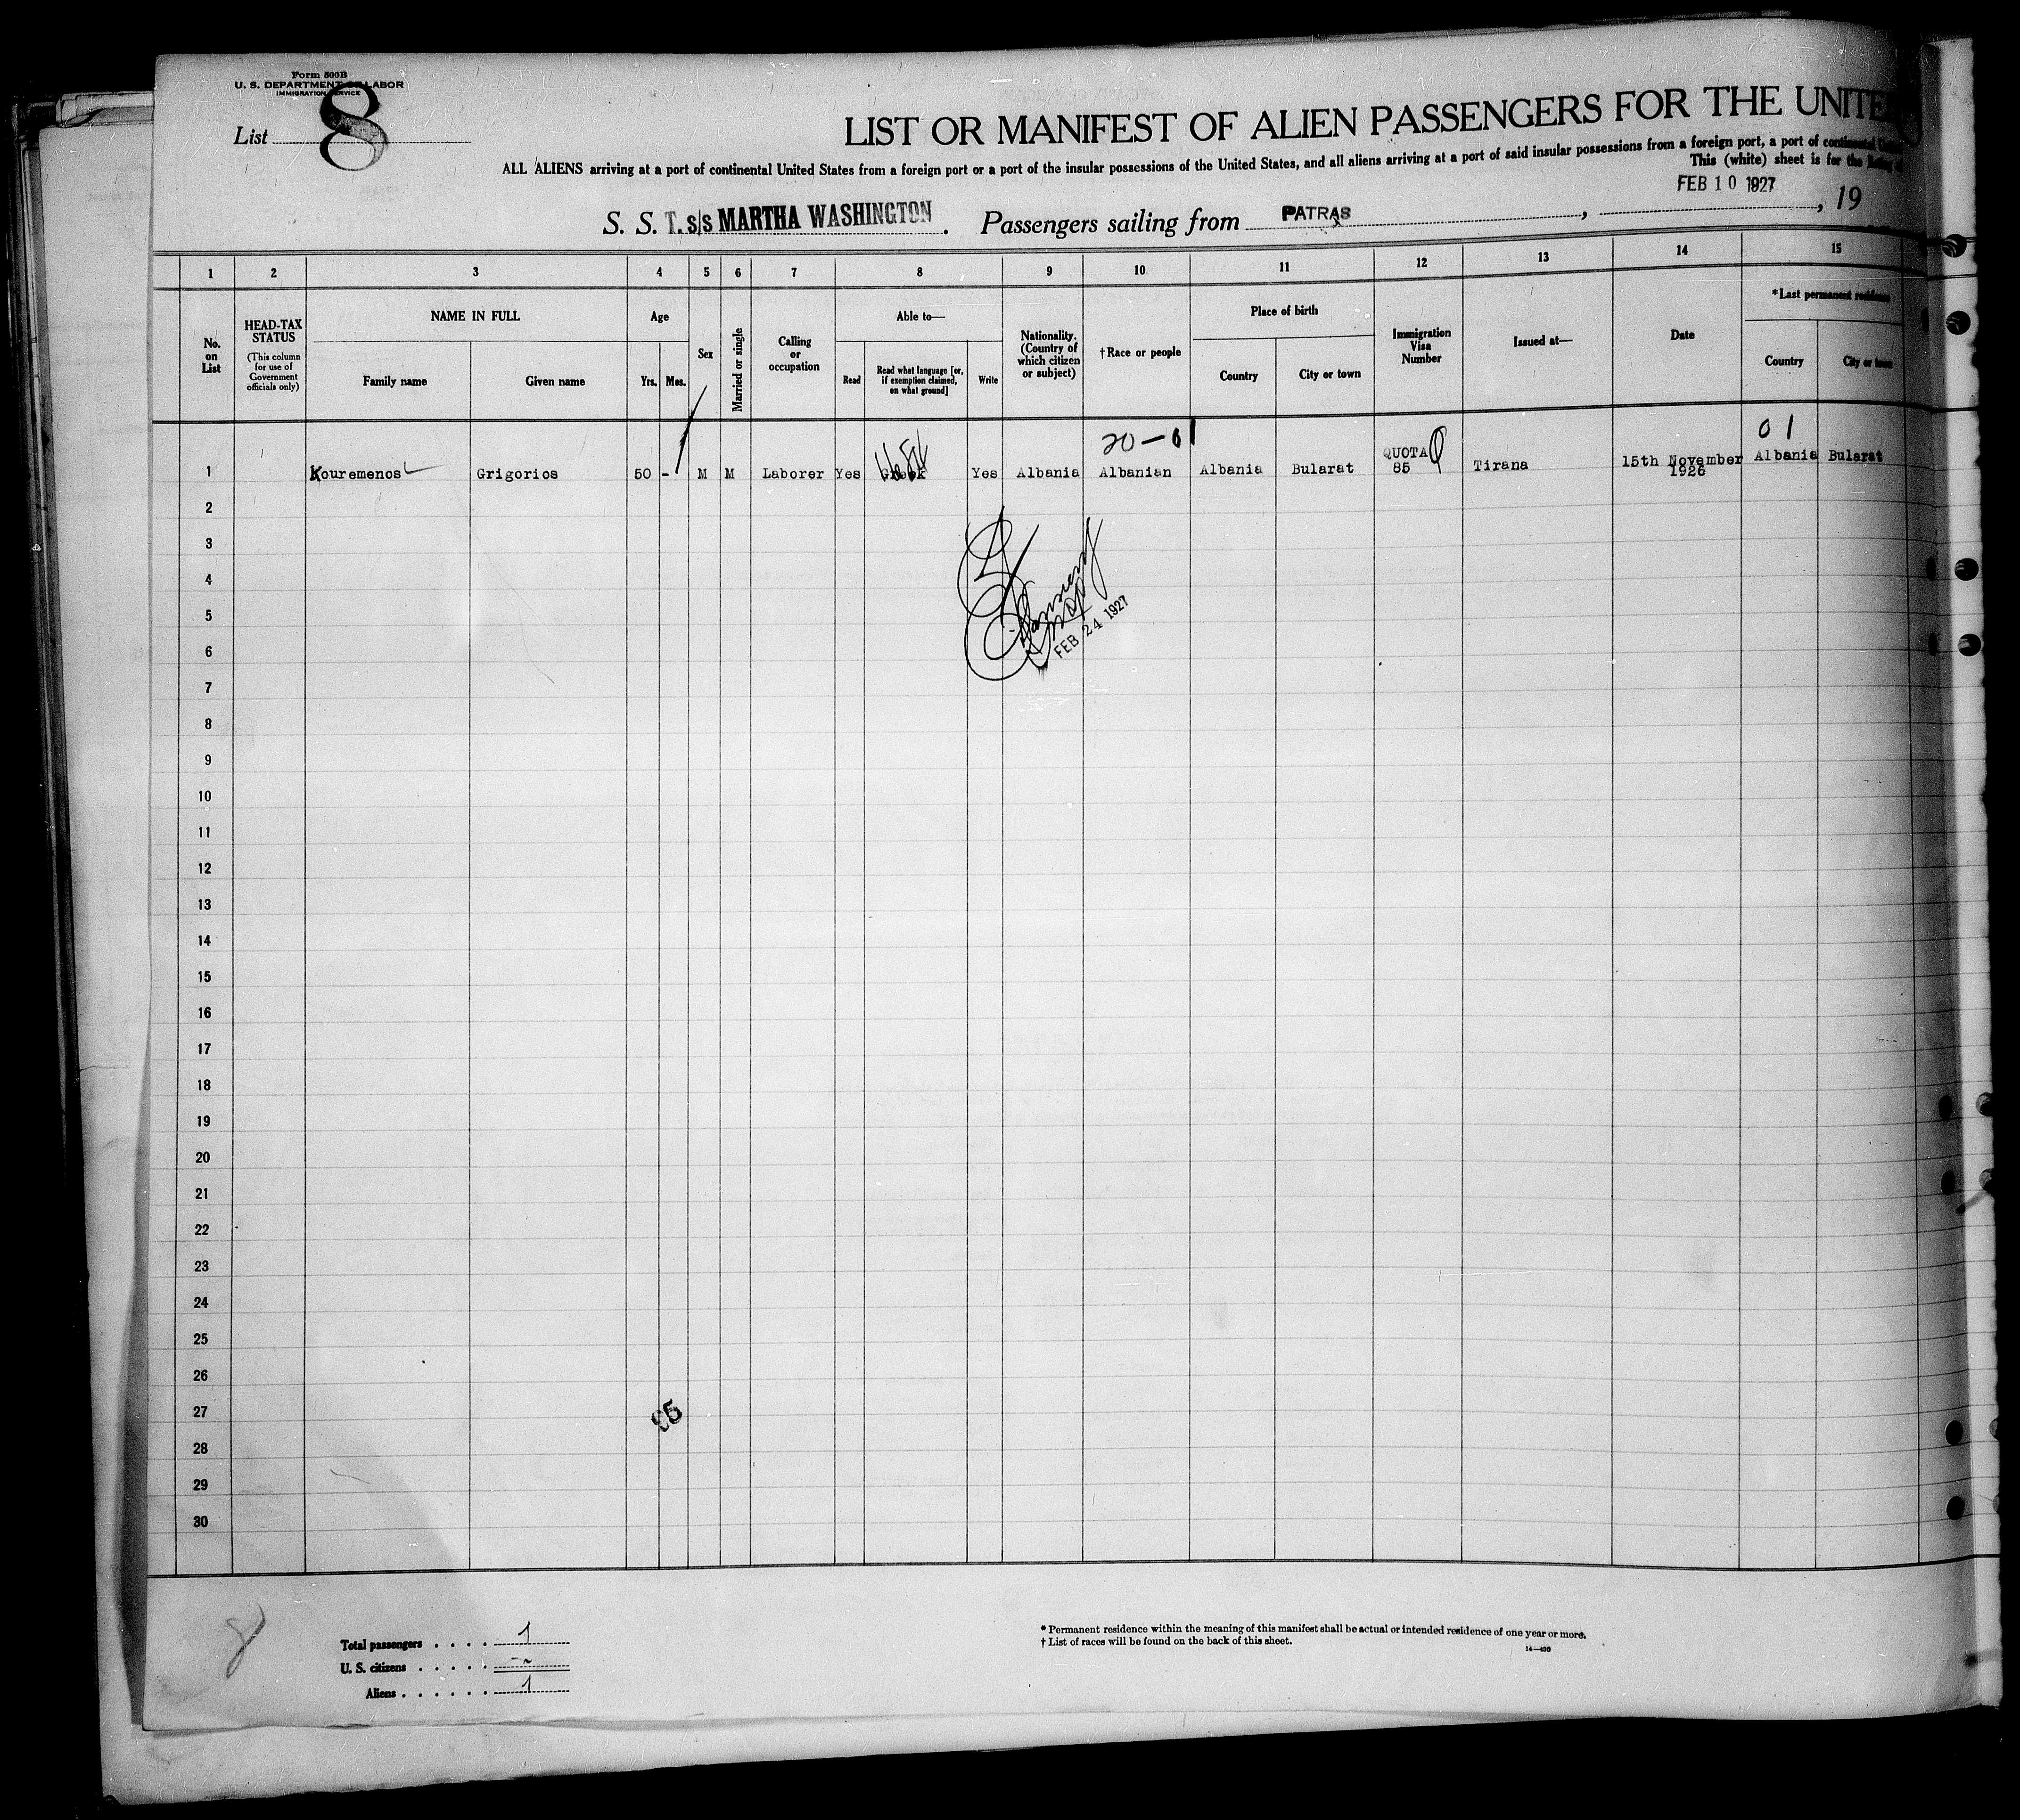 Form 500B
U. S. DEPARTMENT OF LABOR
IMMIGRATION SERVICE
List 8
LIST OR MANIFEST OF ALIEN PASSENGERS FOR THE UNITE
ALL ALIENS arriving at a port of continental United States from a foreign port or a port of the insular possessions of the United States, and all aliens arriving at a port of said insular possessions from a foreign port, a port of continental
This (white) sheet is for the listing
FEB 10 1927
S. S. T. s/s MARTHA WASHINGTON . Passengers sailing from PATRAS , , 19
1 2 3 4 5 6 7 8 9 10 11 12 13 14 15
No. on List
HEAD-TAX STATUS
(This column for use of Government officials only)
NAME IN FULL
Family name Given name
Age
Yrs. Mos.
Sex
Married or single
Calling or occupation
Able to—
Read
Read what language [or, if exemption claimed, on what ground]
Write
Nationality. (Country of which citizen or subject)
†Race or people
Place of birth
Country City or town
Immigration Visa Number
Issued at—
Date
*Last permanent residence
Country City or town
20-01 01
1 Kouremenos Grigorios 50 - M M Laborer Yes Greek Yes Albania Albanian Albania Bularat QUOTA 85 Tirana 15th November 1926 Albania Bularat
2
3
4
5
6
FEB 24 1927
7
8
9
10
11
12
13
14
15
16
17
18
19
20
21
22
23
24
25
26
27
28
29
30
8
Total passengers . . . . 1
U. S. citizens . . . . . -
Aliens . . . . . . 1
* Permanent residence within the meaning of this manifest shall be actual or intended residence of one year or more.
† List of races will be found on the back of this sheet.